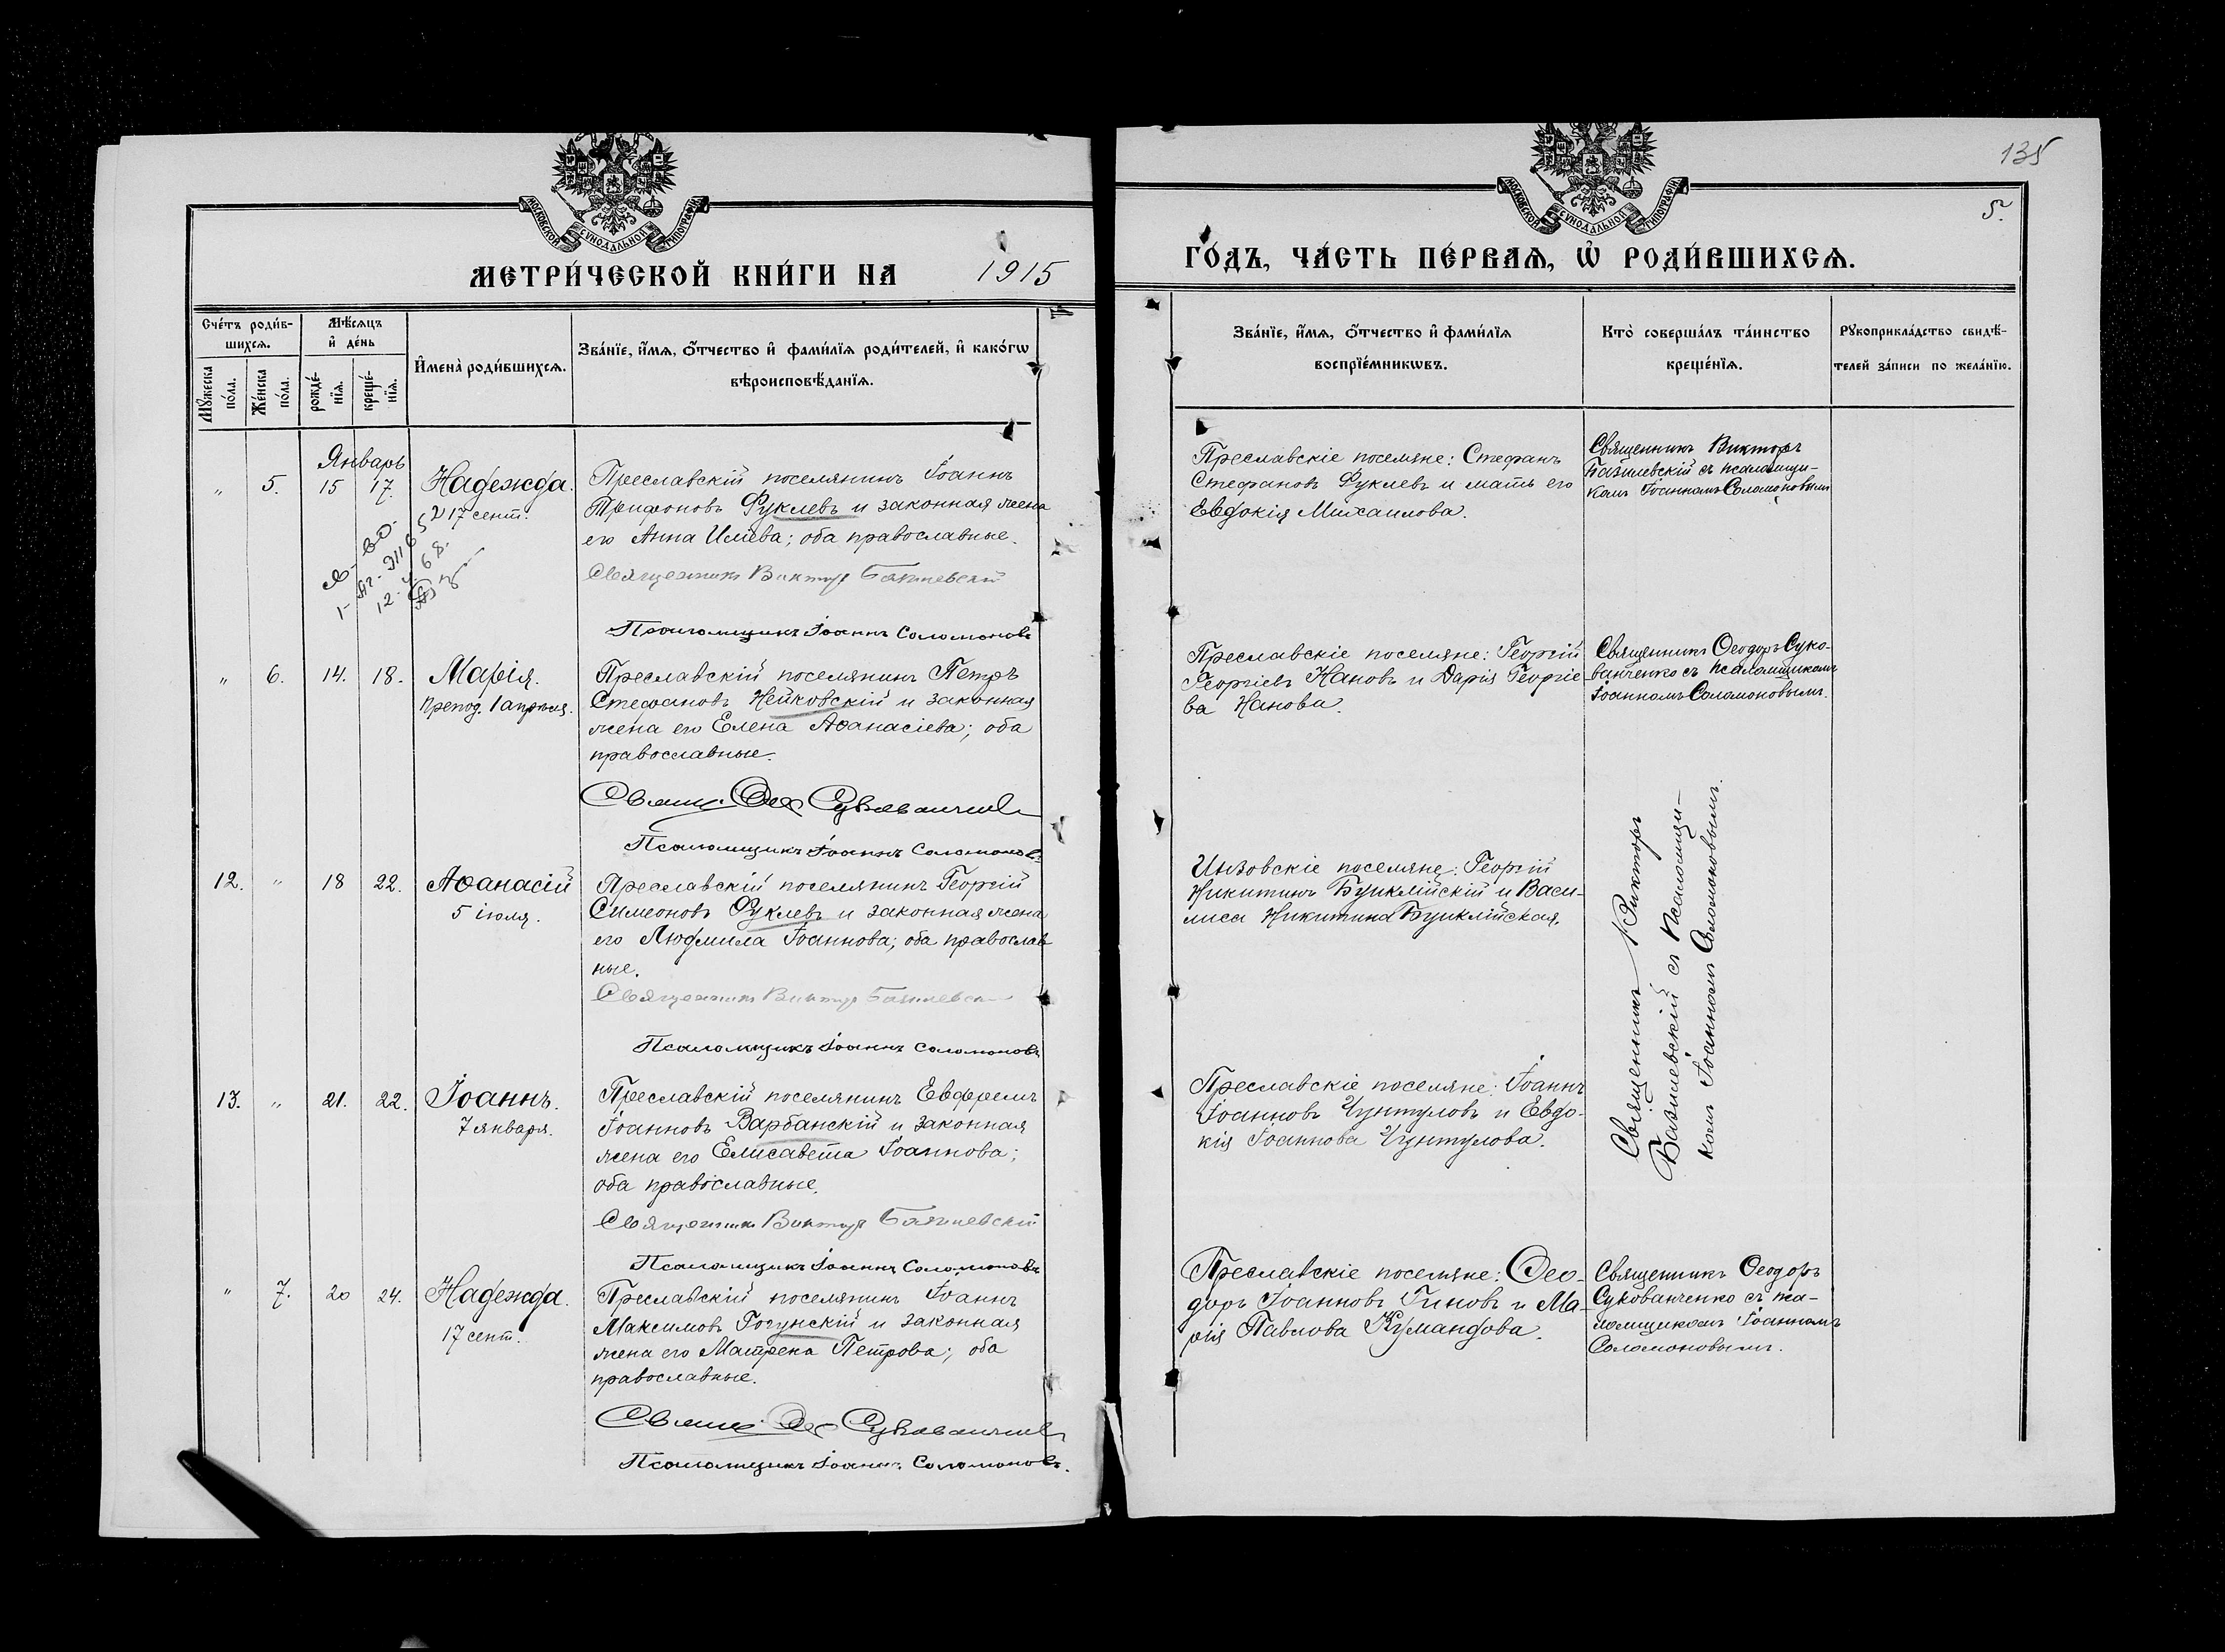 135
5.
МОСКОВСКОЙ СУНОДАЛЬНОЙ ТИПОГРАФІИ
МОСКОВСКОЙ СУНОДАЛЬНОЙ ТИПОГРАФІИ
МЕТРИ́ЧЕСКОЙ КНИ́ГИ НА 1915
ГО́ДЪ, ЧА́СТЬ ПЕ́РВАѦ, Ѡ҆ РОДИ́ВШИХСѦ.
Сче́тъ роди́в-
шихсѧ.
Мꙋ́жеска по́ла.
Же́нска по́ла.
Мѣ́сѧцъ
и҆ де́нь
рожде́-
нїѧ.
креще́-
нїѧ.
И҆мена̀ роди́вшихсѧ.
Зва́нїе, и҆́мѧ, ѻ҆́тчество и҆ фами́лїѧ роди́телей, и҆ како́гѡ
вѣроисповѣ́данїѧ.
Зва́нїе, и҆́мѧ, ѻ҆́тчество и҆ фами́лїѧ
воспрїе́мникѡвъ.
Кто̀ соверша́лъ та́инство
креще́нїѧ.
Рꙋкоприкла́дство свидѣ́-
телей за́писи по жела́нїю.
Январь
" 5. 15 17. Надежда.
17 сент.
Преславскій поселянинъ Іоаннъ
Трифоновъ Фуклевъ и законная жена
его Анна Илiева; оба православные.
Священникъ Викторъ Базилевскій
Псаломщикъ Іоаннъ Соломоновъ
Преславскіе поселяне: Стефанъ
Стефановъ Фуклевъ и мать его
Евдокія Михаилова.
Священникъ Викторъ
Базилевскій съ псаломщи-
комъ Іоанномъ Соломоновымъ
" 6. 14. 18. Марія.
препод. 1 апрѣля.
Преславскій поселянинъ Петръ
Стефановъ Нейковскій и законная
жена его Елена Аѳанасіева; оба
православные.
Свящ. Ѳео Сукованченко
Псаломщикъ Іоаннъ Соломоновъ
Преславскіе поселяне: Георгій
Георгіевъ Нановъ и Дарія Георгіе-
ва Нанова.
Священникъ Ѳеодоръ Суко-
ванченко съ псаломщикомъ
Іоанномъ Соломоновымъ.
12. " 18 22. Аѳанасій
5 іюля.
Преславскій поселянинъ Георгій
Симеоновъ Фуклевъ и законная жена
его Людмила Іоаннова; оба православ-
ные.
Священникъ Викторъ Базилевскій
Псаломщикъ Іоаннъ Соломоновъ
Инзовскіе поселяне: Георгій
Никитинъ Буиклійскій и Васи-
лиса Никитина Буиклійская.
Священникъ Викторъ
Базилевскій съ псаломщи-
комъ Іоанномъ Соломоновымъ.
13. " 21. 22. Іоаннъ.
7 января.
Преславскій поселянинъ Евфремъ
Іоанновъ Варбанскій и законная
жена его Елисавета Іоаннова;
оба православные.
Священникъ Викторъ Базилевскій
Псаломщикъ Іоаннъ Соломоновъ
Преславскіе поселяне: Іоаннъ
Іоанновъ Чунтуловъ и Евдо-
кія Іоаннова Чунтулова.
" 7. 20 24. Надежда.
17 сент.
Преславскій поселянинъ Іоаннъ
Максимовъ Гогунскій и законная
жена его Матрена Петрова; оба
православные.
Свящ. Ѳео Сукованченко
Псаломщикъ Іоаннъ Соломоновъ.
Преславскіе поселяне: Ѳео-
доръ Іоанновъ Гиновъ и Ма-
рія Павлова Кумандова.
Священникъ Ѳеодоръ
Сукованченко съ пса-
ломщикомъ Іоанномъ
Соломоновымъ.